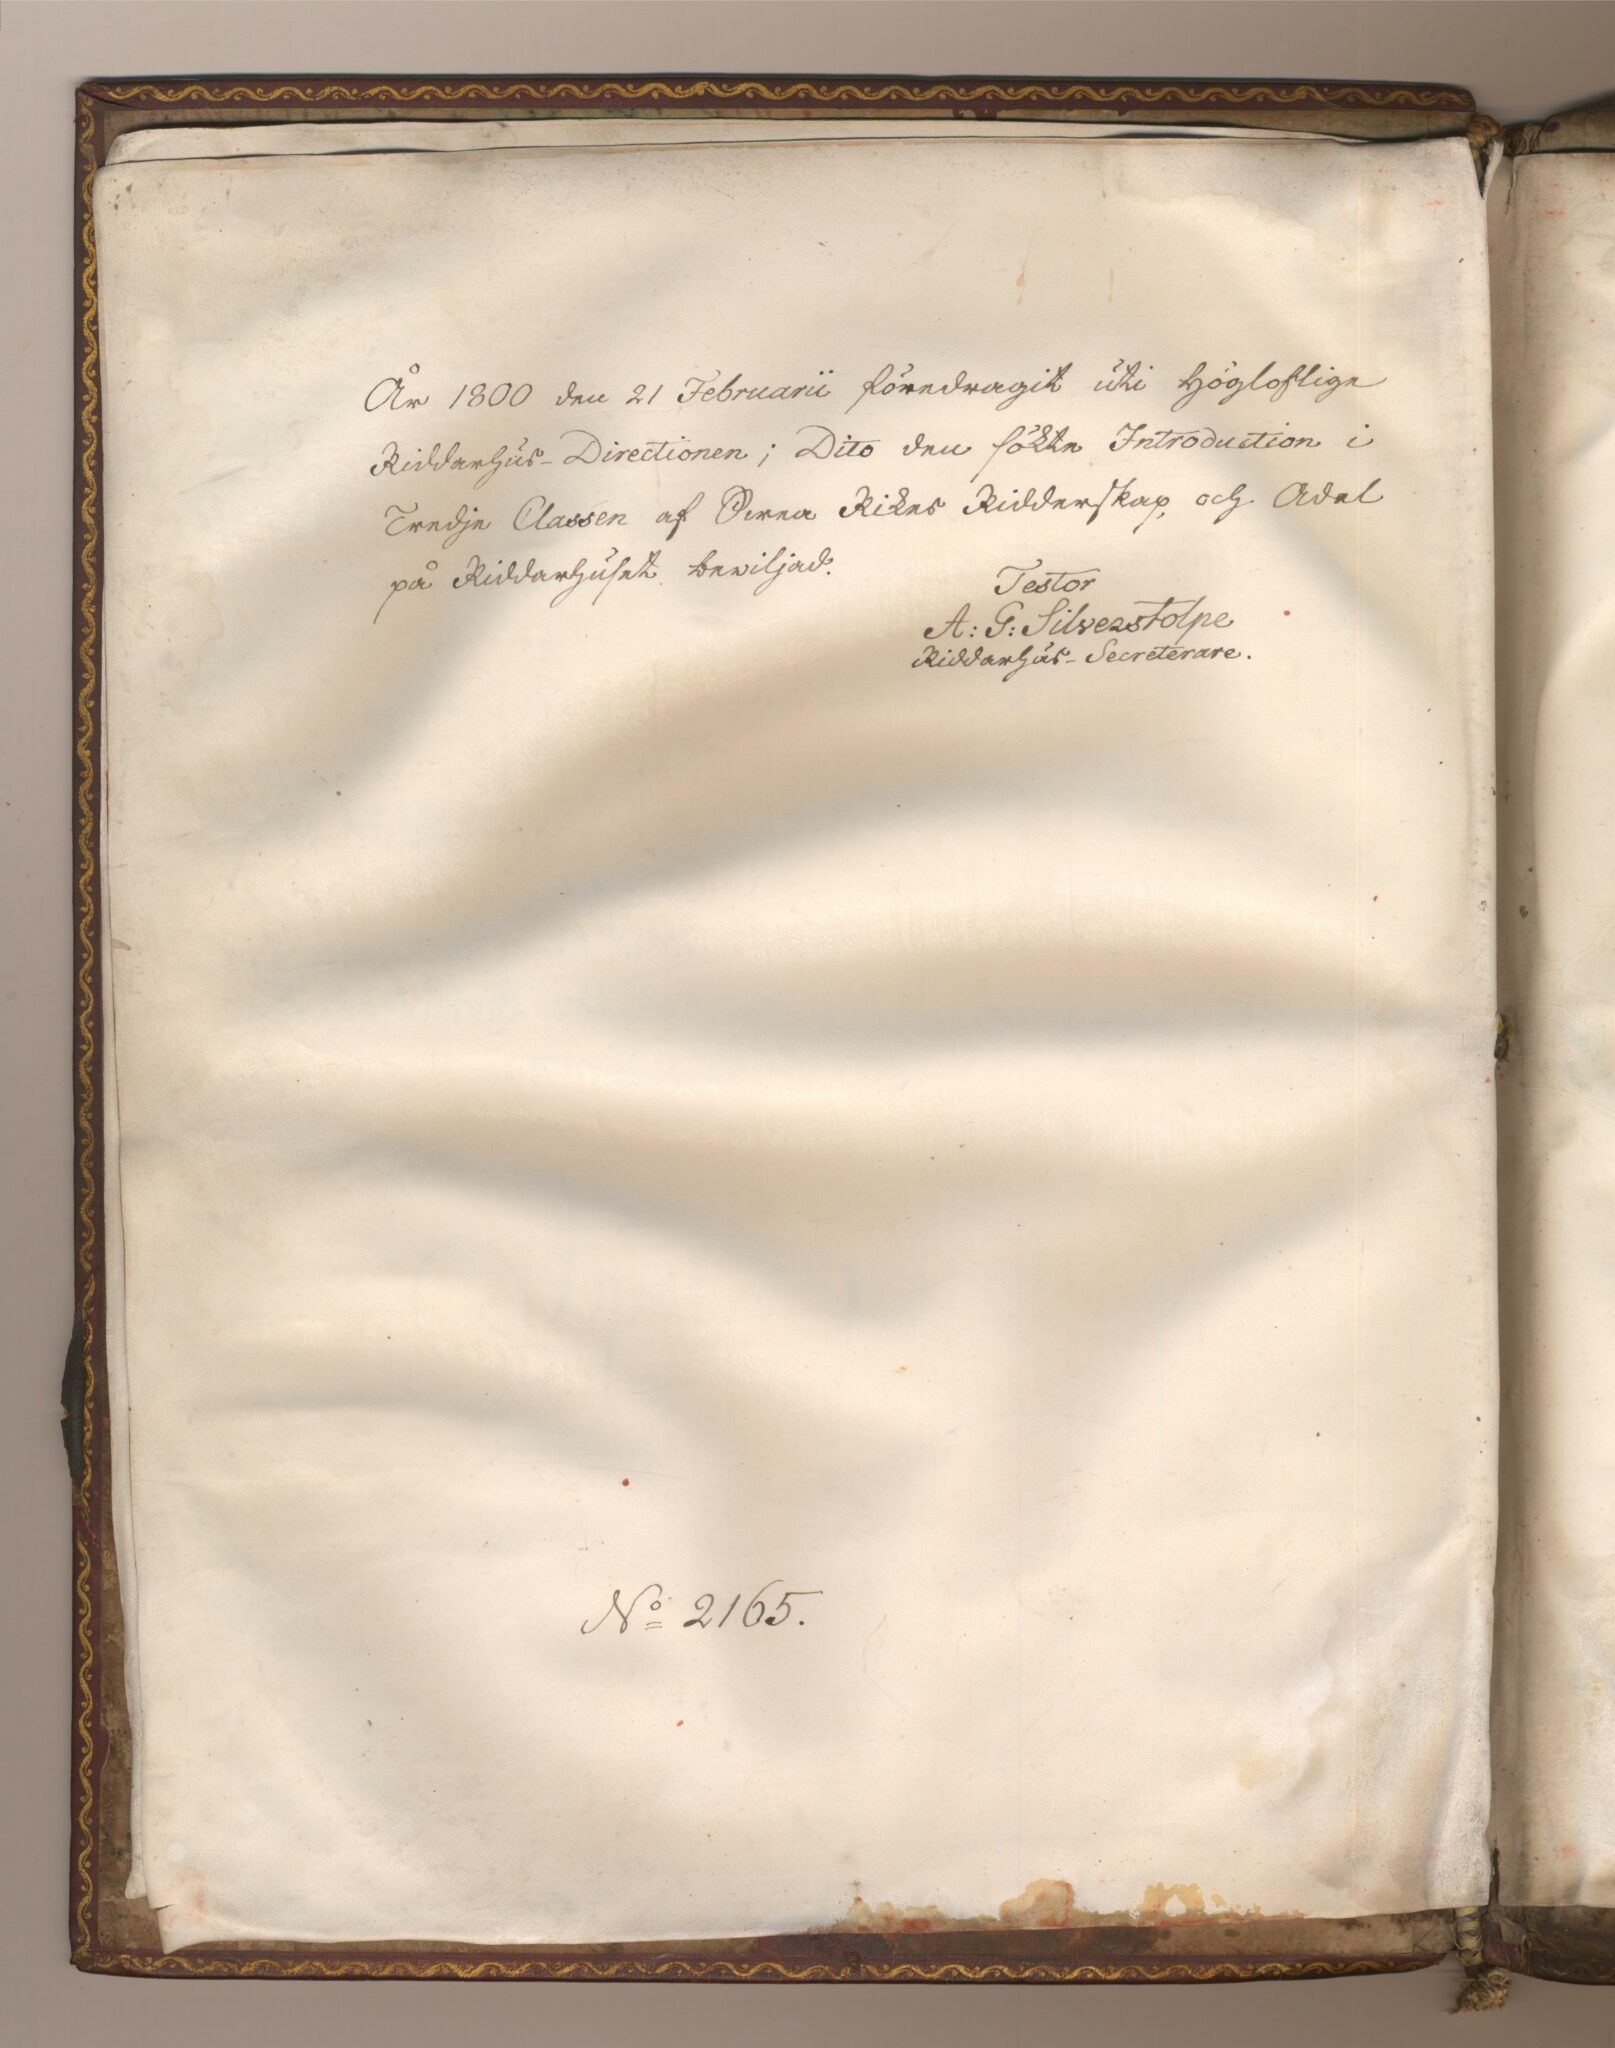 År 1800 den 21 Februarii föredragit uti Högloflige
Riddarhus-Directionen; Dito den sökte Introduction i
Tredje Classen af Svea Rikes Ridderskap och Adel
på Riddarhuset beviljad.
Testor
A: G: Silverstolpe
Riddarhus-Secreterare.
No 2165.